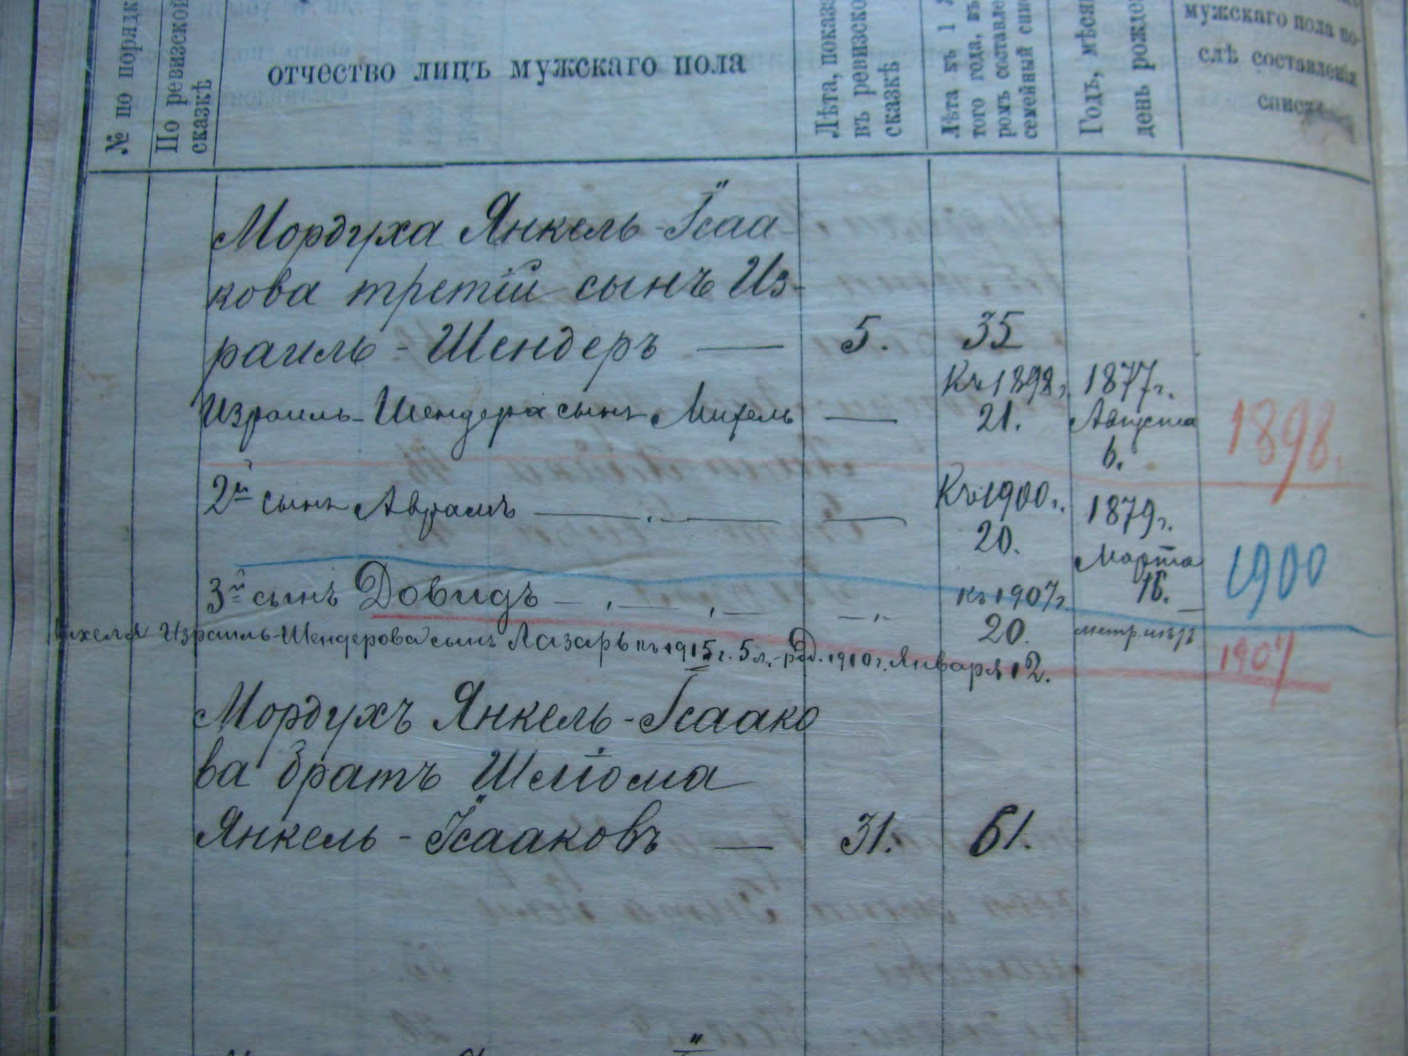 № по порядк
По ревизской
сказкѣ
отчество лицъ мужскаго пола
Лѣта, показ
въ ревизско
сказкѣ
Лѣта къ 1
того года, въ
ромъ составле
семейный спис
Годъ, мѣся
день рожде
мужскаго пола по-
слѣ составленія
списк
Мордуха Янкель-Iсаа-
кова третій сынъ Из-
раиль-Шендеръ — 5. 35
Къ 1898 г. 1877 г.
Израиль-Шендера сынъ Михель — 21. Августа
6. 1898.
2й сынъ Аврамъ — Къ 1900 г. 1879 г.
20. Марта
16. 1900
3й сынъ Довидъ — къ 1907 г.
20. 1907
ихеля Израиль-Шендерова сынъ Лазарь къ 1915 г. 5 л. - род. 1910 г. Января 12.
Мордухъ Янкель-Iсаако
ва братъ Шліома
Янкель-Iсааковъ — 31. 61.